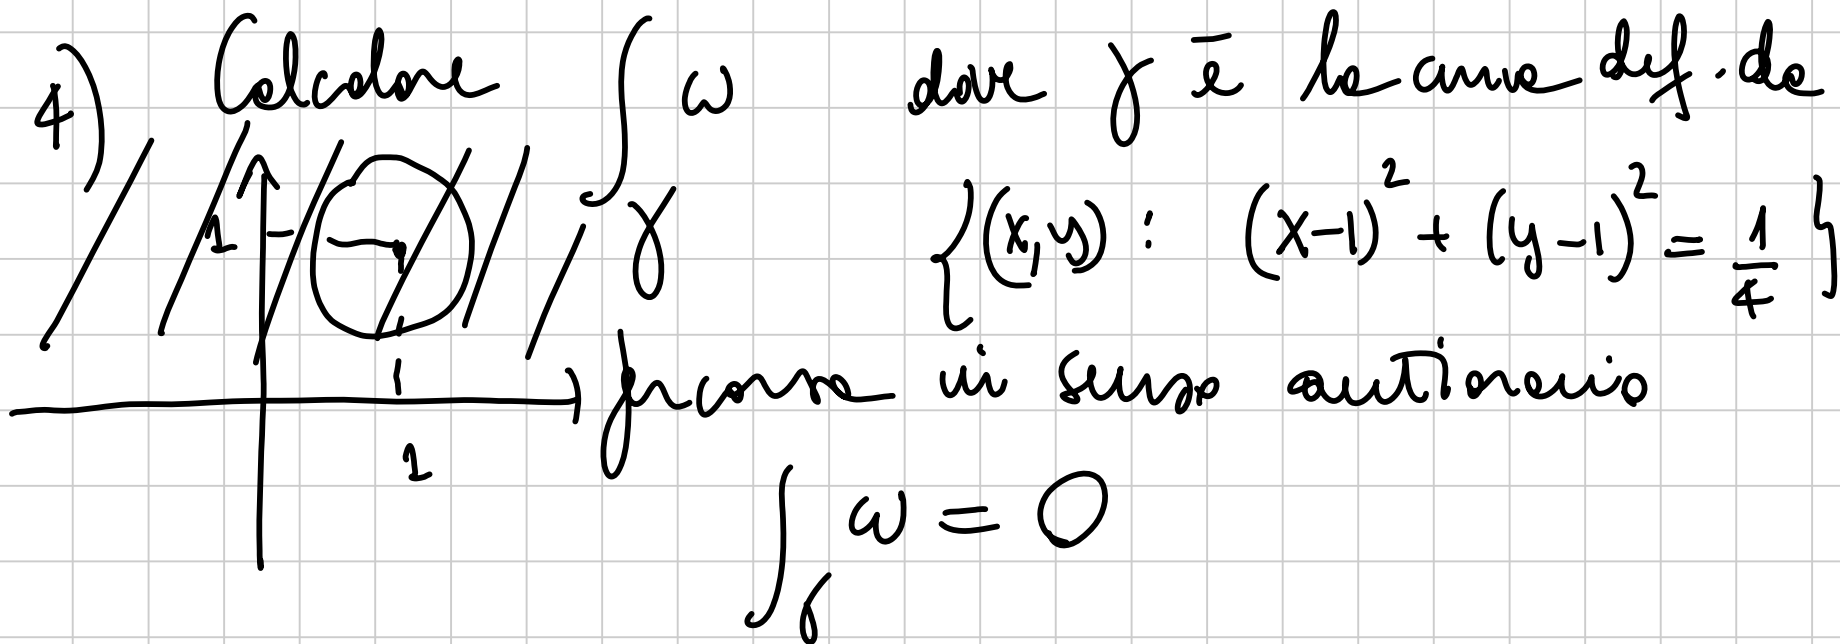 4) Calcolare ∫_γ ω dove γ è la curva def. da
{(x,y) : (x-1)² + (y-1)² = 1/4}
1
percorsa in senso antiorario
1
∫_γ ω = 0